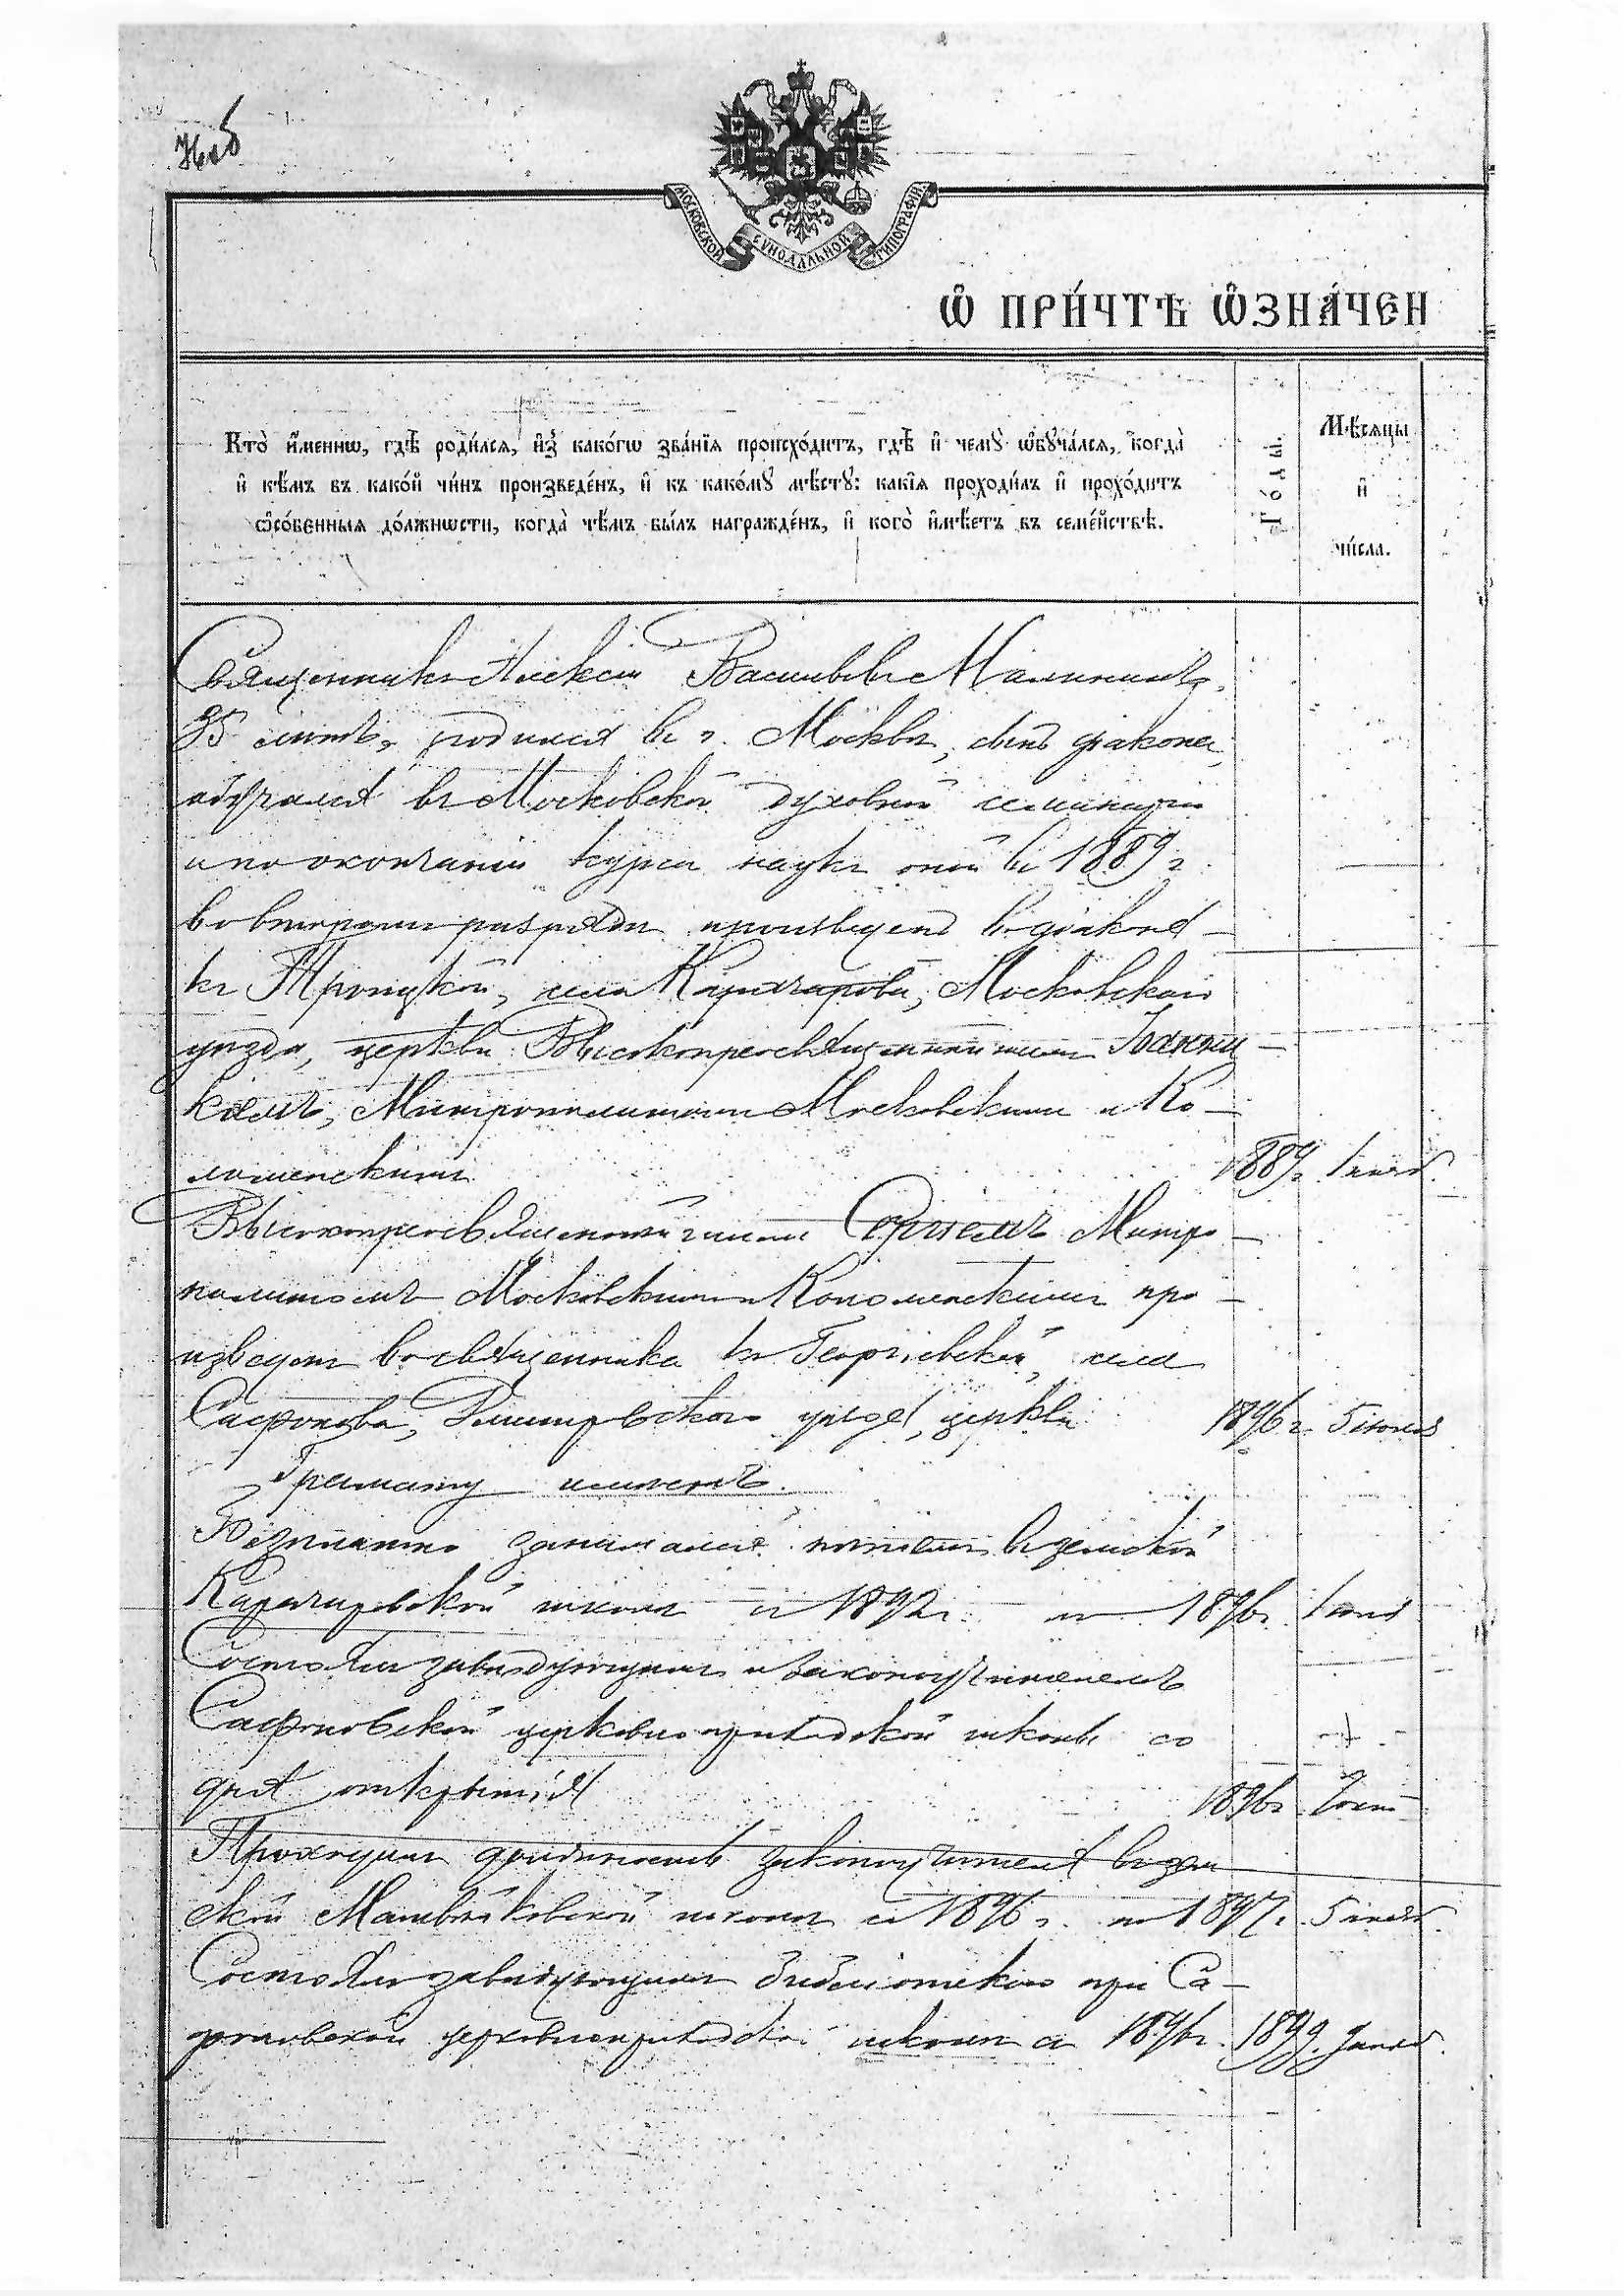 МОСКОВСКОЙ СѴНОДАЛЬНОЙ ТИПОГРАФІИ.
Ѡ ПРИ́ЧТѢ Ѡ҆ЗНА́ЧЕН
Кто̀ и҆́менно, гдѣ̀ роди́лся, и҆з̾ како́гѡ зва́нїя происхо́дитъ, гдѣ̀ и҆ чемꙋ̀ ѡ҆бꙋча́лся, когда̀
и҆ кѣ́мъ въ како́й чи́нъ произведе́нъ, и҆ къ како́мꙋ мѣ́стꙋ: какі́я проходи́лъ и҆ прохо́дитъ
ѡ҆со́бенныя до́лжнѡсти, когда̀ чѣ́мъ бы́лъ награжде́нъ, и҆ кого̀ и҆мѣ́етъ въ семе́йствѣ.
Го́ды.
Мѣ́сяцы
и҆
чи́сла.
Священникъ Алексій Васильевъ Малининъ,
35 лѣтъ, родился въ г. Москвѣ, сынъ діакона,
обучался въ Московской духовной семинаріи
и по окончаніи курса наукъ оной въ 1889 г.
во второмъ разрядѣ произведенъ во діакона
къ Троицкой, села Карачарова, Московскаго
уѣзда, церкви Высокопреосвященнѣйшимъ Іоанни-
кіемъ, Митрополитомъ Московскимъ и Ко-
ломенскимъ 1889 г.
Высокопреосвященнѣйшимъ Сергіемъ Митро-
политомъ Московскимъ и Коломенскимъ про-
изведенъ во священника къ Георгіевской, села
Сафонова, уѣзда, церкви 1896 г. 5 іюля
Грамату имѣетъ.
Безплатно занимался пѣніемъ въ земской
Карачаровской школѣ съ 1892 г. по 1896 г. 1 іюля
Состоялъ завѣдующимъ и законоучителемъ
Сафоновской церковно приходской школы со
дня открытія 1896 г.
Проходилъ должность законоучителя въ зем
ской школѣ съ 1896 г. по 1897 г. 5
Состоялъ завѣдующимъ библіотекою при Са-
фоновской церковноприходской школѣ съ 1896 г. 1899.